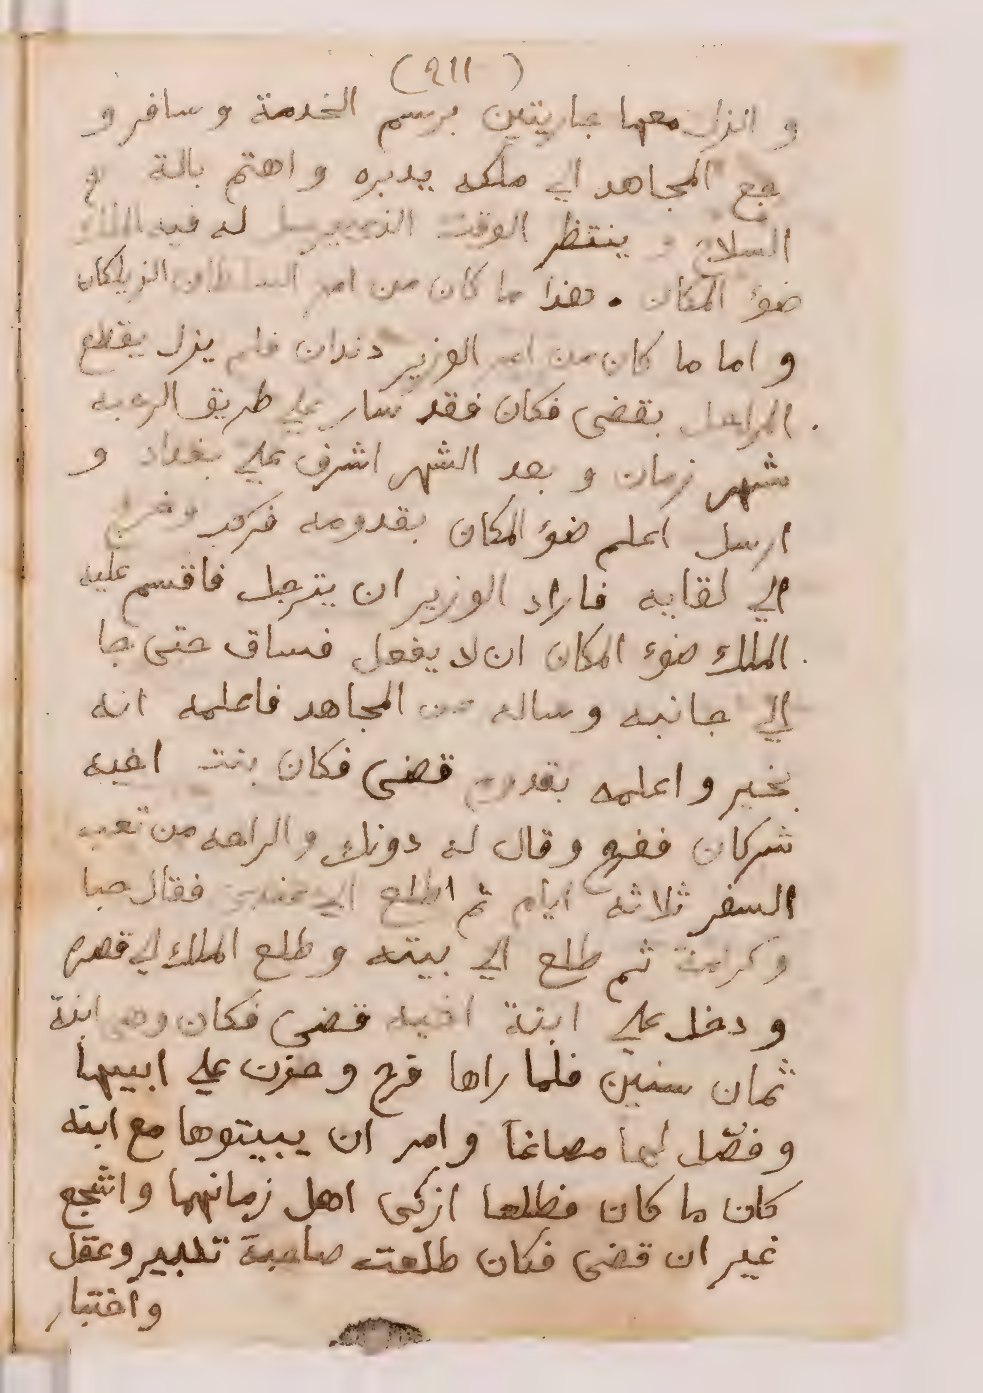 (٩١١)
و انزل معها جاريتين برسم الخدمة و سافر و
جع المجاهد الي ملكه يدبره و اهتم بالة و
السلاح و ينتظر الوقت الذي يرسل له فيه الملك
ضوء المكان . هذا ما كان من امر السلطان الزبلكان
و اما ما كان من امر الوزير دندان فلم يزل يقطع
المراحل بقضى فكان فقد سار علي طريق الرحبه
شهر زمان و بعد الشهر اشرف علي بغداد و
ارسل اعلم ضوء المكان بقدومه فركب و خرج
الي لقايه فاراد الوزير ان يترجل فاقسم عليه
الملك ضوء المكان ان لا يفعل فساق حتى جا
الي جانبه و ساله عن المجاهد فاعلمه انه
بخير و اعلمه بقدوم قضى فكان بنت اخيه
شركان ففرح و قال له دونك والراحه من تعب
السفر ثلاثه ايام ثم اطلع الي عندي فقال حبا
وكرامة ثم طلع الي بيته و طلع الملك الي قصره
و دخل علي ابنة اخيه قضى فكان وهي ابنة
ثمان سنين فلما راها فرح و حزن علي ابيها
و فصّل لها مصاغا و امر ان يبيتوها مع ابنه
كان ما كان فطلعا ازكى اهل زمانهما و اشجع
غير ان قضى فكان طلعت صاحبة تدبير وعقل
واختبار